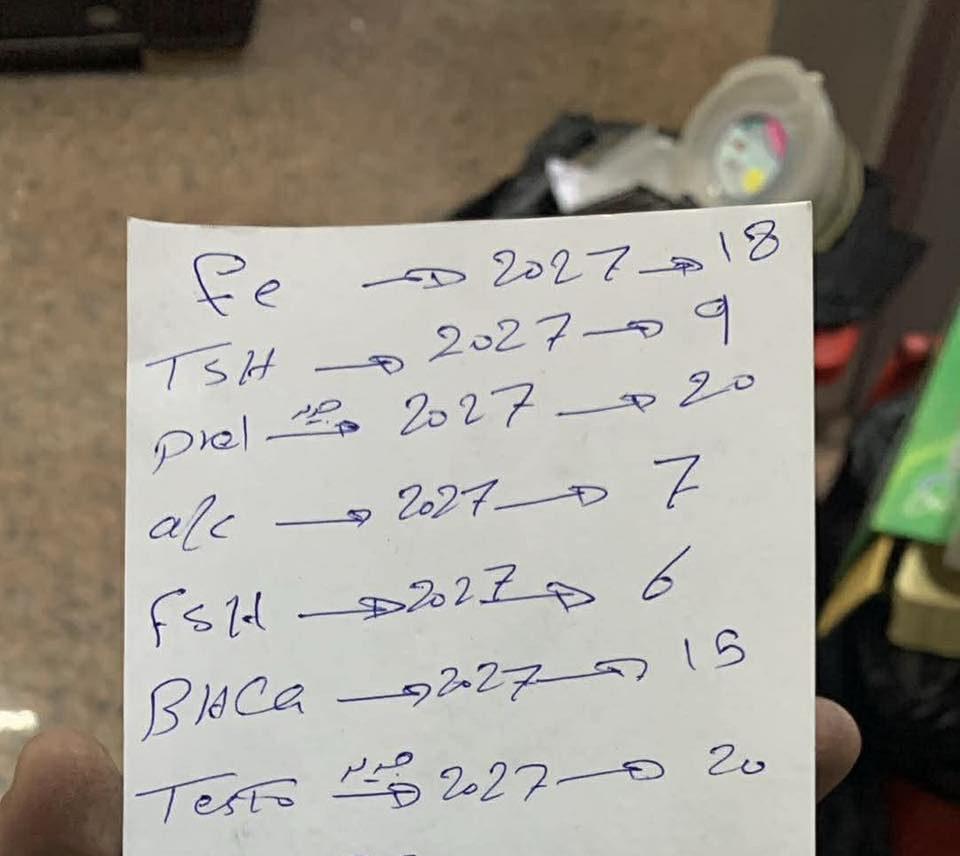 Fe → 2027 → 18
TSH → 2027 → 9
prol → 2027 → 20
a/c → 2027 → 7
FSH → 2027 → 6
BHCG → 2027 → 15
Testo → 2027 → 20